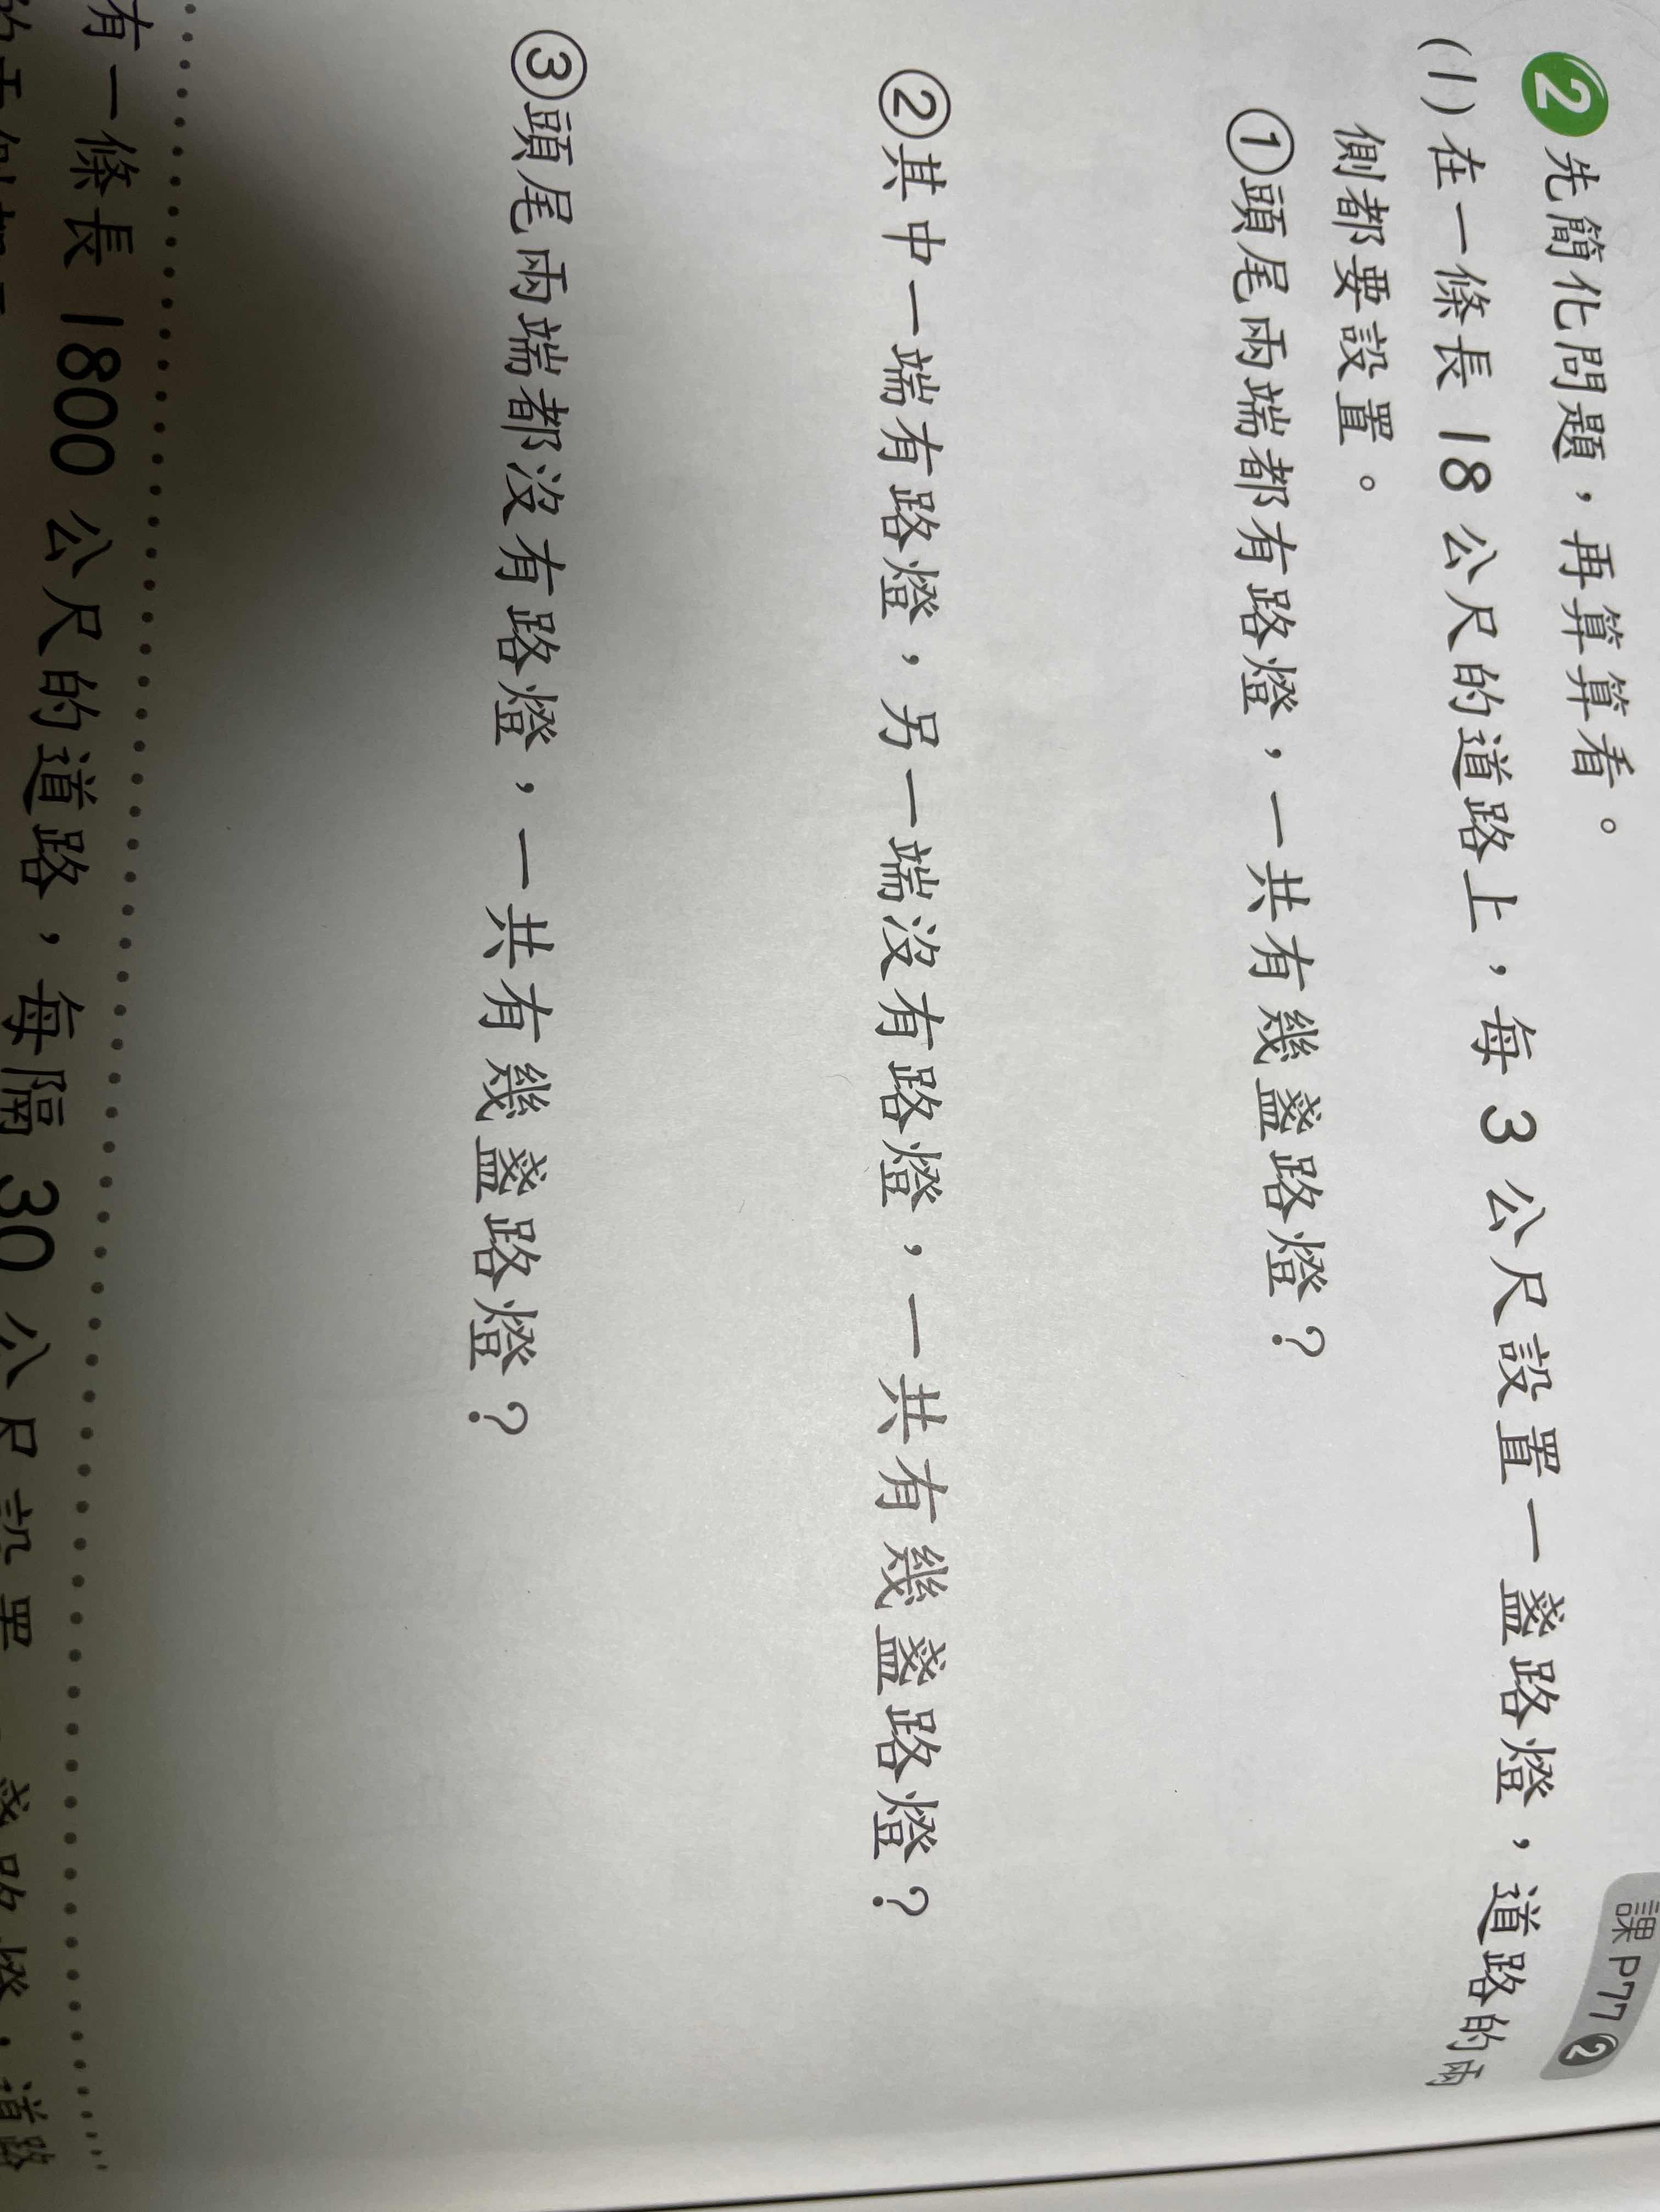 課 P77 2
2 先簡化問題，再算算看。
(1) 在一條長 18 公尺的道路上，每 3 公尺設置一盞路燈，道路的兩
側都要設置。
①頭尾兩端都有路燈，一共有幾盞路燈？
②其中一端有路燈，另一端沒有路燈，一共有幾盞路燈？
③頭尾兩端都沒有路燈，一共有幾盞路燈？
有一條長 1800 公尺的道路，每隔 30 公尺設置一盞路燈，道路